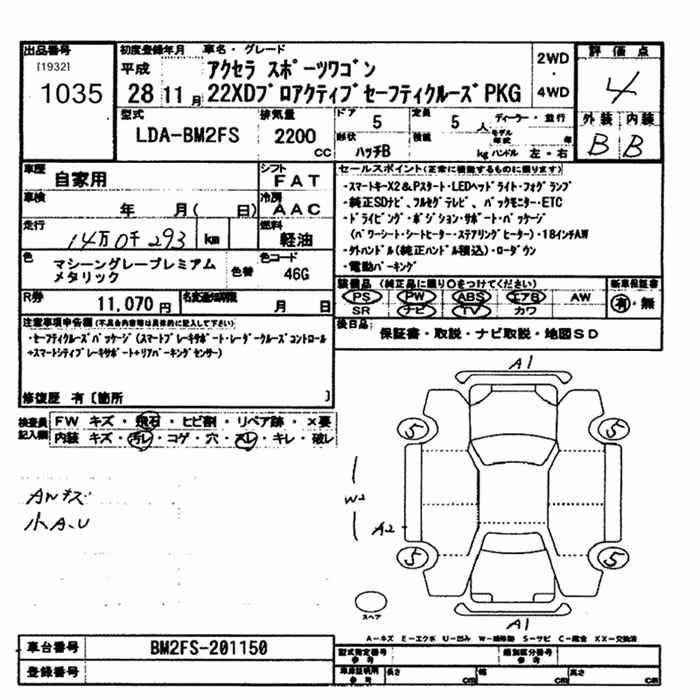 出品番号
[1932]
1035
初度登録年月
平成
28 11 月
車名・グレード
アクセラ スポーツワゴン
22XDプロアクティブセーフティクルーズPKG
2WD
・
4WD
評価点
4
外装 内装
B B
型式
LDA-BM2FS
排気量
2200
CC
ドア
5
形状
ハッチB
定員
5
人
積載
kg
ディーラー・並行
モデル年式 年
ハンドル 左・右
車歴
自家用
シフト
FAT
車検
年 月( 日)
冷房
AAC
走行
14万0千293 km
燃料
軽油
色
マシーングレープレミアム
メタリック
色替
色コード
46G
R券
11,070円
名変通知期限
月 日
セールスポイント(正常に機能するものに限ります)
・スマートキーX2&Pスタート・LEDヘッドライト・フォグランプ
・純正SDナビ、フルセグテレビ、バックモニター・ETC
・ドライビング・ポジション・サポート・パッケージ
(パワーシート・シートヒーター・ステアリングヒーター)・18インチAW
・外ハンドル(純正ハンドル積込)・ローダウン
・電動パーキング
装備品 (純正品に限り○をつけてください)
PS PW ABS エアB AW
SR ナビ TV カワ
新車保証書
有・無
後日品
保証書・取説・ナビ取説・地図SD
注意事項申告欄(不具合内容等は具体的に記入して下さい)
・セーフティクルーズパッケージ(スマートブレーキサポート・レーダークルーズコントロール
+スマートシティブレーキサポート+リアパーキングセンサー)
修復歴 有〔箇所 〕
検査員
記入欄
FW キズ・飛石・ヒビ割・リペア跡・×要
内装 キズ・汚レ・コゲ・穴・スレ・キレ・破レ
A1
5 5
W2
A2
5 5
スペア
A1
A-キズ E-エクボ U-凹み W-補修跡 S-サビ C-腐食 XX-交換済
車台番号
BM2FS-201150
登録番号
型式指定番号
参考
類別区分番号
参考
車庫証明用
参考
長さ cm
幅 cm
高さ cm